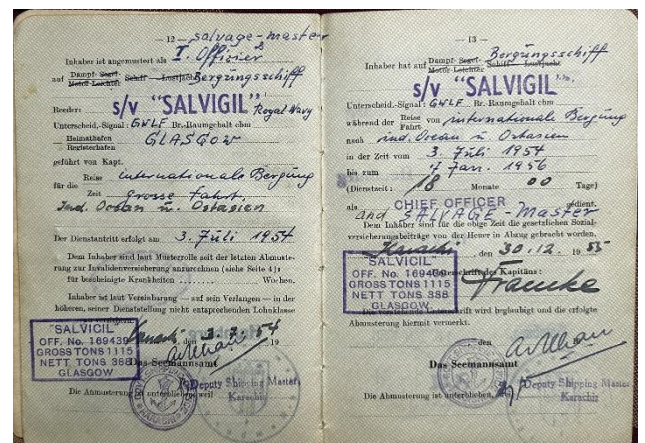 — 12 —
salvage-master
Inhaber ist angemustert als I. Offizier
auf Dampf- Segel- Motor-Leichter Schiff — Lustjacht Bergungsschiff
s/v "SALVIGIL"
Reederei: Royal Navy
Unterscheid.-Signal: GWLF Br. Raumgehalt cbm
Heimathafen
Registerhafen GLASGOW
geführt von Kapt.
für die Reise internationale Bergung
Zeit Grosse Fahrt.
Ind. Ocean u. Ostasien
Der Dienstantritt erfolgt am 3. Juli 1954
Dem Inhaber sind laut Musterrolle seit der letzten Abmuste-
rung zur Invalidenversicherung anzurechnen (siehe Seite 4):
für bescheinigte Krankheiten Wochen.
Inhaber ist laut Vereinbarung — auf sein Verlangen — in der
höheren, seiner Dienststellung nicht entsprechenden Lohnklasse
"SALVIGIL"
OFF. No. 169439
GROSS TONS 1115
NETT TONS 388
GLASGOW
den 3.7.54 19
Das Seemannsamt
Deputy Shipping Master
Karachi
Die Abmusterung ist unterblieben, weil
— 13 —
Inhaber hat auf Dampf- Segel- Motor-Leichter Schiff — Lustjacht Bergungsschiff
s/v "SALVIGIL"
Unterscheid.-Signal: GWLF Br. Raumgehalt cbm
während der Reise Fahrt von internationale Bergung
nach ind. Ocean u. Ostasien
in der Zeit vom 3. Juli 1954
bis zum Jan. 1956
(Dienstzeit: 18 Monate 00 Tage)
als CHIEF OFFICER gedient.
and SALVAGE-Master
Dem Inhaber sind für die obige Zeit die gesetzlichen Sozial-
versicherungsbeiträge von der Heuer in Abzug gebracht worden.
Karachi, den 30.12. 1955
"SALVIGIL"
OFF. No. 169439
GROSS TONS 1115
NETT TONS 388
GLASGOW
Unterschrift des Kapitäns:
Francke
Die vorstehende Unterschrift wird beglaubigt und die erfolgte
Abmusterung hiermit vermerkt.
den
Das Seemannsamt
Deputy Shipping Master
Karachi
Die Abmusterung ist unterblieben,